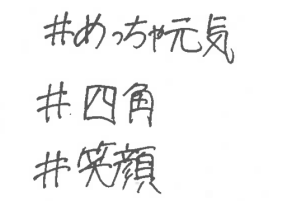 #めっちゃ元気
#四角
#笑顔